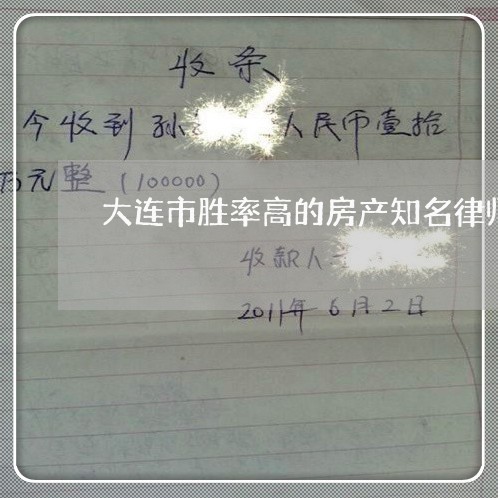 收条
今收到孙 人民币壹拾
万元整(100000)
大连市胜率高的房产知名律师
收款人
2011年6月2日